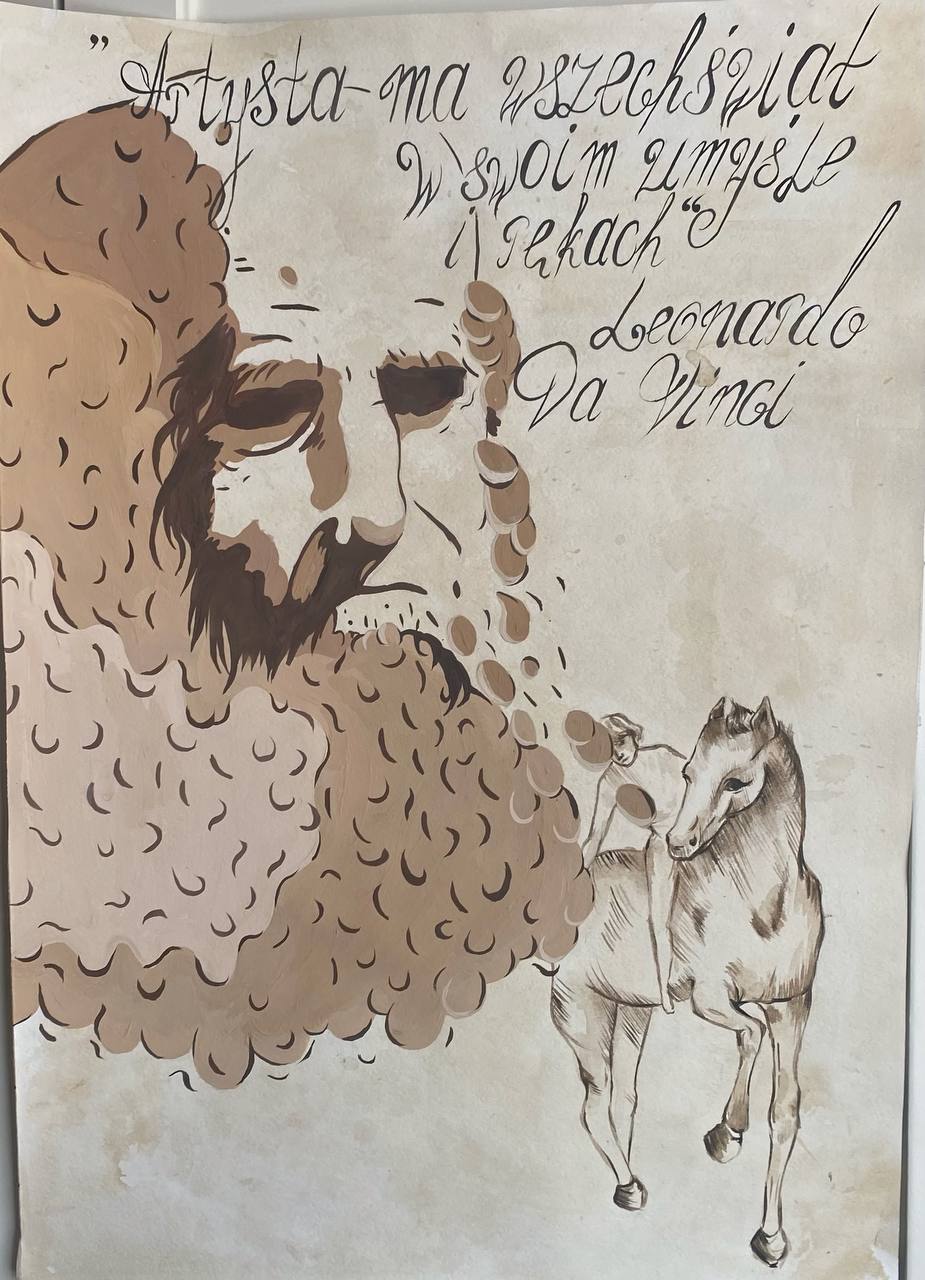 ” Artysta - ma wszechświat
w swoim umyśle
i rękach “
Leonardo
Da Vinci